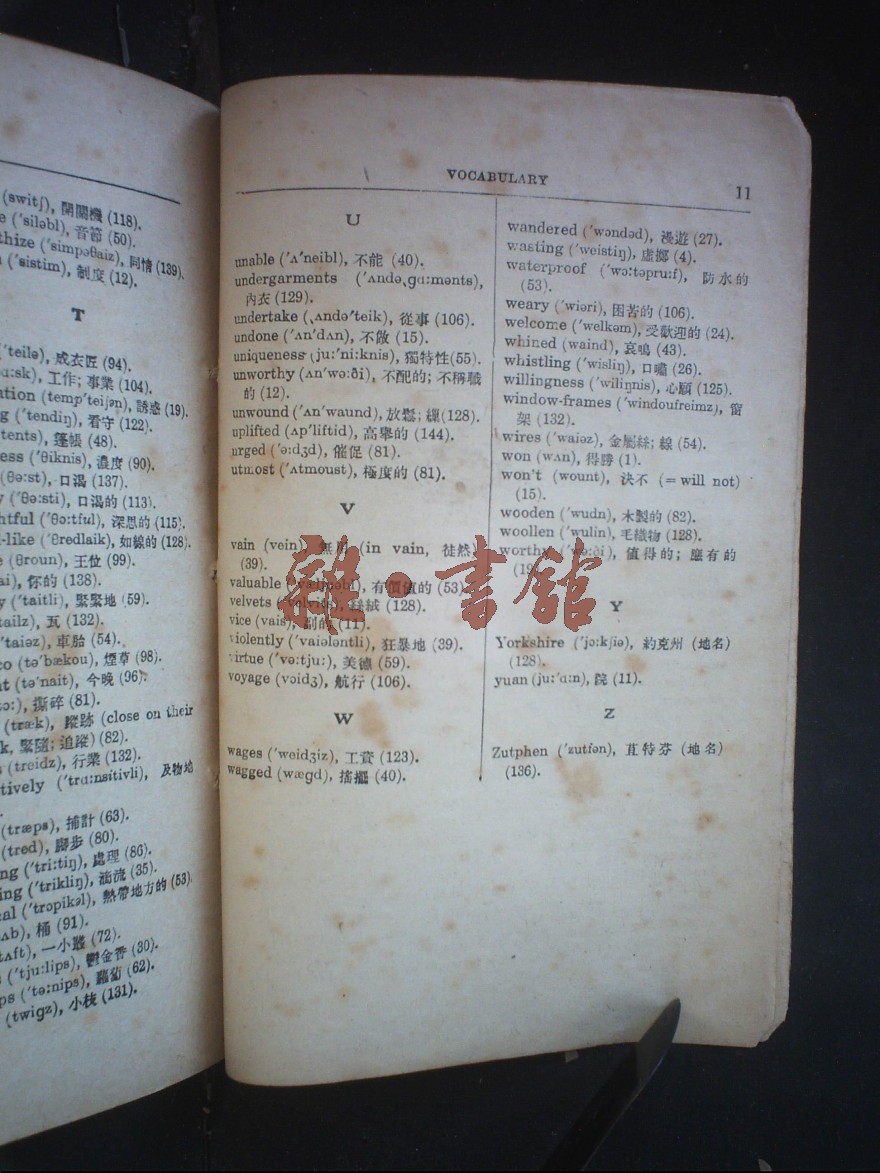 (switʃ), 開關機 (118).
('siləbl), 音節 (50).
thize ('simpəθaiz), 同情 (139).
('sistim), 制度 (12).
T
('teilə), 成衣匠 (94).
ɑ:sk), 工作; 事業 (104).
ation (temp'teiʃən), 誘惑 (19).
g ('tendiŋ), 看守 (122).
(tents), 蓬帳 (48).
ess ('θiknis), 濃度 (90).
(θə:st), 口渴 (137).
y ('θə:sti), 口渴的 (113).
htful ('θɔ:tful), 深思的 (115).
d-like ('θredlaik), 如線的 (128).
e (θroun), 王位 (99).
ai), 你的 (138).
y ('taitli), 緊緊地 (59).
tailz), 瓦 (132).
'taiəz), 車胎 (54).
co (tə'bækou), 煙草 (98).
ht (tə'nait), 今晚 (96).
tɔ:), 撕碎 (81).
(træk), 蹤跡 (close on their
k, 緊隨; 追蹤) (82).
s (treidz), 行業 (132).
tively ('trɑ:nsitivli), 及物地
(træps), 捕計 (63).
(tred), 腳步 (80).
ng ('tri:tiŋ), 處理 (86).
ing ('trikliŋ), 滴流 (35).
cal ('trɔpikəl), 熱帶地方的 (53).
ʌb), 桶 (91).
tʌft), 一小叢 (72).
s ('tju:lips), 鬱金香 (30).
ps ('tə:nips), 蘿蔔 (62).
(twigz), 小枝 (131).
VOCABULARY 11
U
unable ('ʌ'neibl), 不能 (40).
undergarments ('ʌndəˌgɑ:mənts),
內衣 (129).
undertake (ˌʌndə'teik), 從事 (106).
undone ('ʌn'dʌn), 不做 (15).
uniqueness (ju:'ni:knis), 獨特性 (55).
unworthy (ʌn'wə:ði), 不配的; 不稱職
的 (12).
unwound ('ʌn'waund), 放鬆; 纏 (128).
uplifted (ʌp'liftid), 高舉的 (144).
urged ('ə:dʒd), 催促 (81).
utmost ('ʌtmoust), 極度的 (81).
V
vain (vein), 無用 (in vain, 徒然)
(39).
valuable ('væljuəbl), 有價值的 (53).
velvets ('velvits), 絲絨 (128).
vice (vais), 副的 (11).
violently ('vaiələntli), 狂暴地 (39).
virtue ('və:tju:), 美德 (59).
voyage (vɔidʒ), 航行 (106).
W
wages ('weidʒiz), 工資 (123).
wagged (wægd), 搖擺 (40).
wandered ('wɔndəd), 漫遊 (27).
wasting ('weistiŋ), 虛擲 (4).
waterproof ('wɔ:təpru:f), 防水的
(53).
weary ('wiəri), 困苦的 (106).
welcome ('welkəm), 受歡迎的 (24).
whined (waind), 哀鳴 (43).
whistling ('wisliŋ), 口嘯 (26).
willingness ('wiliŋnis), 心願 (125).
window-frames ('windoufreimz), 窗
架 (132).
wires ('waiəz), 金屬絲; 線 (54).
won (wʌn), 得勝 (1).
won't (wount), 決不 (= will not)
(15).
wooden ('wudn), 木製的 (82).
woollen ('wulin), 毛織物 (128).
worthy ('wə:ði), 值得的; 應有的
Y
Yorkshire ('jɔ:kʃiə), 約克州 (地名)
(128).
yuan (ju:'ɑ:n), 院 (11).
Z
Zutphen ('zutfən), 苴特芬 (地名)
(136).
雜·書館